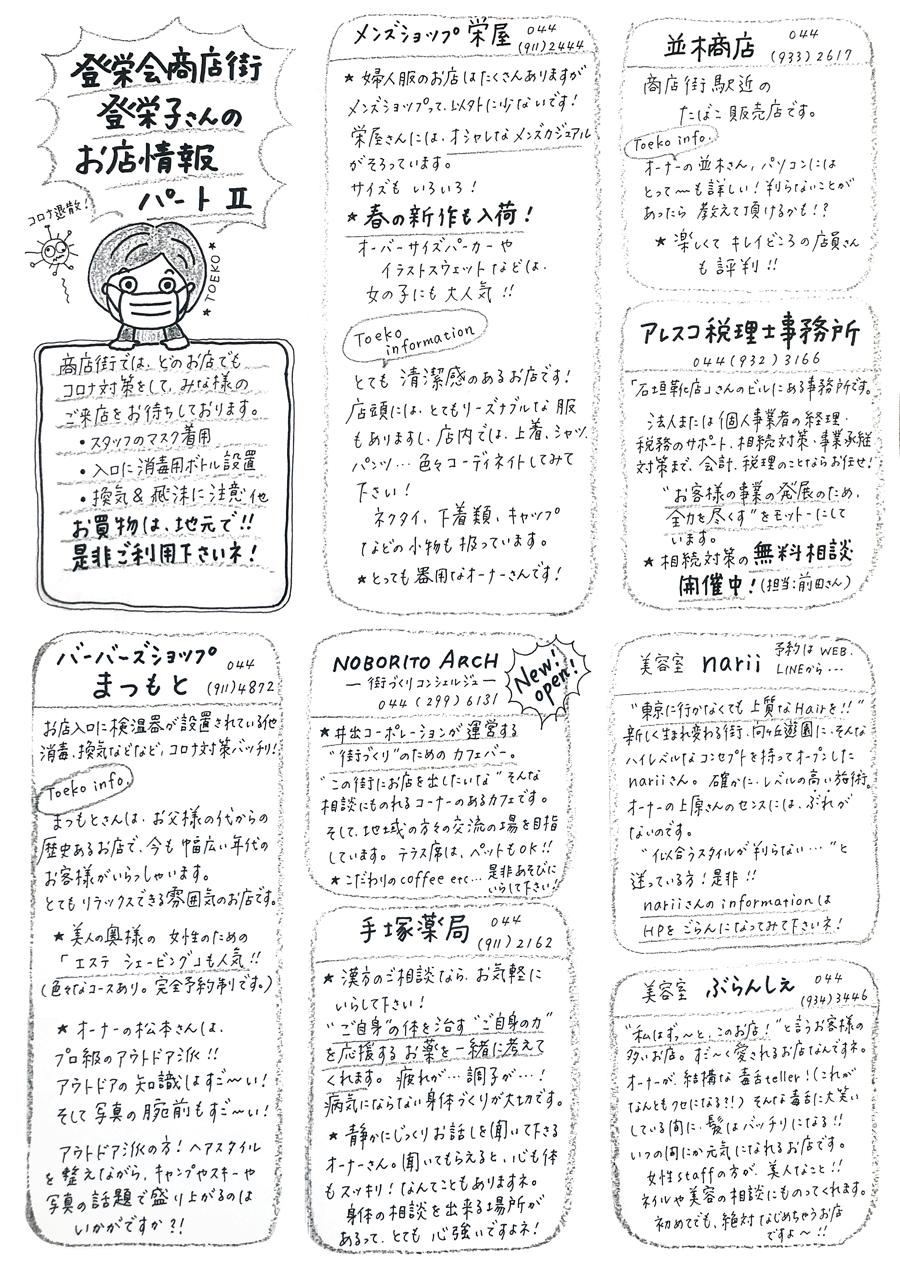 登栄会商店街
登栄子さんの
お店情報
パート Ⅱ
コロナ退散!
★TOEKO★
商店街では、どのお店でも
コロナ対策をして、みな様の
ご来店をお待ちしております。
・スタッフのマスク着用
・入口に消毒用ボトル設置
・換気&飛沫に注意他
お買物は、地元で!!
是非ご利用下さいネ!
メンズショップ 栄屋 044
(911)2444
★ 婦人服のお店はたくさんありますが
メンズショップって、以外に少ないです!
栄屋さんには、オシャレなメンズカジュアル
がそろっています。
サイズも いろいろ!
★ 春の新作も入荷!
オーバーサイズパーカーや
イラストスウェットなどは、
女の子にも大人気!!
Toeko
information
とても 清潔感のあるお店です!
店頭には、とてもリーズナブルな服
もありますし、店内では、上着、シャツ、
パンツ… 色々コーディネイトしてみて
下さい!
ネクタイ、下着類、キャップ
などの小物も扱っています。
★とっても器用なオーナーさんです!
並木商店 044
(933)2617
商店街駅近の
たばこ販売店です。
Toeko info.
オーナーの並木さん、パソコンには
とって〜も詳しい!判らないことが
あったら 教えて頂けるかも!?
★ 楽しくて キレイどころの店員さん
も評判!!
アレスコ税理士事務所
044(932)3166
「石垣靴店」さんのビルにある事務所です。
法人または個人事業者の経理、
税務のサポート、相続対策、事業承継
対策まで、会計、税理のことならお任せ!
"お客様の事業の発展のため、
全力を尽くす"をモットーにして
います。
★相続対策の無料相談
開催中!(担当:前田さん)
バーバーズショップ
まつもと 044
(911)4872
お店入口に検温器が設置されている他
消毒、換気などなど、コロナ対策バッチリ!
Toeko info.
まつもとさんは、お父様の代からの
歴史あるお店で、今も幅広い年代の
お客様がいらっしゃいます。
とてもリラックスできる雰囲気のお店です。
★美人の奥様の 女性のための
「エステ シェービング」も人気!!
(色々なコースあり。完全予約制です。)
★ オーナーの松本さんは、
プロ級のアウトドア派!!
アウトドアの知識はすご〜い!
そして写真の腕前もすご〜い!
アウトドア派の方!ヘアスタイル
を整えながら、キャンプやスキーや
写真の話題で盛り上がるのは
いかがですか?!
NOBORITO ARCH
― 街づくりコンシェルジュ ―
044(299)6131
New!
open!
★井出コーポレーションが運営する
"街づくり"のためのカフェバー。
"この街にお店を出したいな"そんな
相談にものれるコーナーのあるカフェです。
そして、地域の方々の交流の場を目指
しています。テラス席は、ペットもOK!!
★こだわりのcoffee etc… 是非あそびに
いらして下さい!
手塚薬局 044
(911)2162
★ 漢方のご相談なら、お気軽に
いらして下さい!
"ご自身"の体を治す"ご自身の力"
を応援するお薬を一緒に考えて
くれます。 疲れが… 調子が…!
病気にならない身体づくりが大切です。
★ 静かにじっくりお話しを聞いて下さる
オーナーさん。聞いてもらえると、心も体
もスッキリ!なんてこともありますネ。
身体の相談を出来る場所が
あるって、とても 心強いですよネ!
美容室 narii 予約はWEB.
LINEから…
"東京に行かなくても 上質なHairを!!"
新しく生まれ変わる街、向ヶ丘遊園に、そんな
ハイレベルなコンセプトを持ってオープンした
nariiさん。確かに、レベルの高い施術。
オーナーの上原さんのセンスには、ぶれが
ないのです。
"似合うスタイルが判らない…"と
迷っている方!是非!!
nariiさんのinformationは
HPをごらんになってみて下さいネ!
美容室 ぶらんしぇ 044
(934)3446
"私はず〜っと、このお店!"と言うお客様の
多いお店。す〜ごく愛されるお店なんですネ。
オーナーが、結構な毒舌teller!(これが
なんともクセになる?!)そんな毒舌に大笑い
している間に、髪はバッチリになる!!
いつの間にか元気になれるお店です。
女性staffの方が、美人なこと!!
ネイルや美容の相談にものってくれます。
初めてでも、絶対なじめちゃうお店
ですよ〜!!